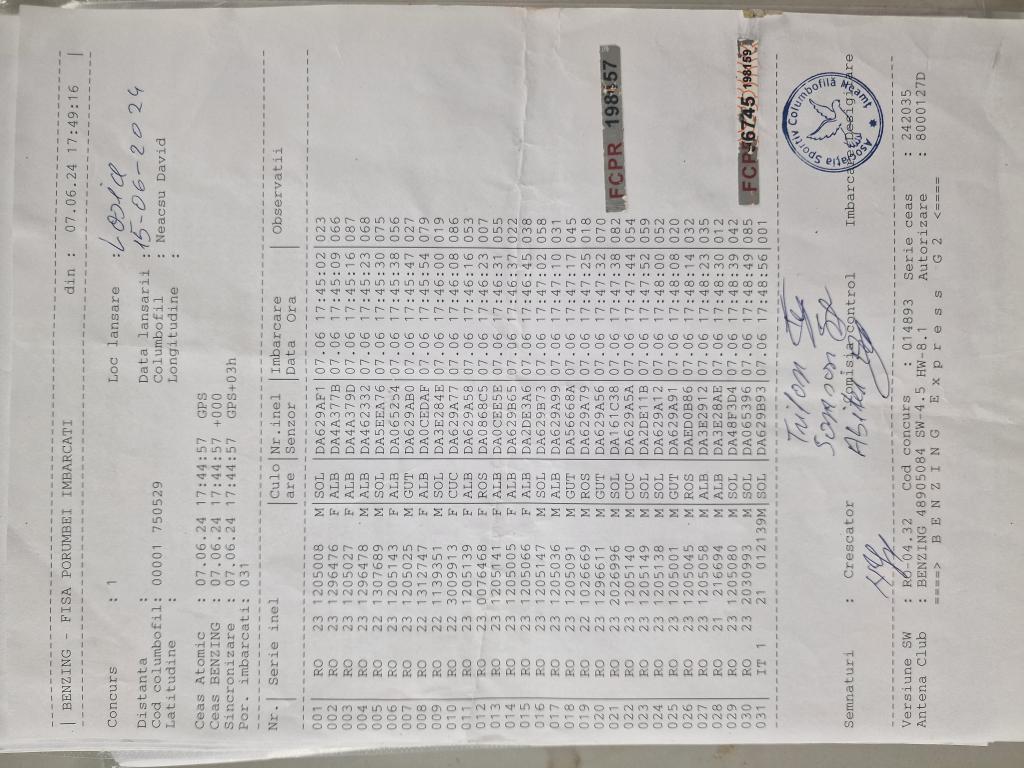 | BENZING - FISA PORUMBEI IMBARCATI din : 07.06.24 17:49:16 |
Concurs : 1 Loc lansare :
Distanta : Data lansarii : 15-06-2024
Cod columbofil: 00001 750529 Columbofil : Neacsu David
Latitudine : Longitudine :
Ceas Atomic : 07.06.24 17:44:57 GPS
Ceas BENZING : 07.06.24 17:44:57 +000
Sincronizare : 07.06.24 17:44:57 GPS+03h
Por. imbarcati: 031
Nr.| Serie inel |Culo|Nr.inel |Imbarcare | Observatii
|are |Senzor |Data Ora |
001 RO 23 1205008 M SOL DA629AF1 07.06 17:45:02 023
002 RO 23 1296476 F ALB DA4A377B 07.06 17:45:09 066
003 RO 23 1205027 F ALB DA4A379D 07.06 17:45:16 087
004 RO 23 1296478 M ALB DA462332 07.06 17:45:23 068
005 RO 22 1307689 M SOL DA5EEA76 07.06 17:45:30 075
006 RO 23 1205143 F ALB DA065254 07.06 17:45:38 056
007 RO 23 1205025 M GUT DA622AB0 07.06 17:45:47 027
008 RO 22 1312747 F ALB DA0CEDAF 07.06 17:45:54 079
009 RO 22 1139351 M SOL DA3E284E 07.06 17:46:00 019
010 RO 22 3009913 F CUC DA629A77 07.06 17:46:08 086
011 RO 23 1205139 F ALB DA622A58 07.06 17:46:16 053
012 RO 23 0076468 F ROS DA0868C5 07.06 17:46:23 007
013 RO 23 1205141 F ALB DA0CEE5E 07.06 17:46:31 055
014 RO 23 1205005 F ALB DA622B65 07.06 17:46:37 022
015 RO 23 1205066 F ALB DA2DE3A6 07.06 17:46:45 038
016 RO 23 1205147 M SOL DA629B73 07.06 17:47:02 058
017 RO 23 1205036 M ALB DA622A99 07.06 17:47:10 031
018 RO 23 1205091 M GUT DA56668A 07.06 17:47:17 045
019 RO 22 1026669 M ROS DA622A79 07.06 17:47:25 018
020 RO 23 1296611 M GUT DA629A56 07.06 17:47:32 070
021 RO 23 2026996 M SOL DA161C38 07.06 17:47:38 082
022 RO 23 1205140 M CUC DA629A5A 07.06 17:47:44 054
023 RO 23 1205149 M SOL DA2DE11B 07.06 17:47:52 059
024 RO 23 1205138 M SOL DA629A12 07.06 17:48:00 052
025 RO 23 1205001 M GUT DA629A91 07.06 17:48:08 020
026 RO 23 1205045 M ROS DAED0B86 07.06 17:48:14 032
027 RO 23 1205058 M ALB DA3E2912 07.06 17:48:23 035
028 RO 21 216694 M ALB DA3E28AE 07.06 17:48:30 012
029 RO 23 1205080 M SOL DA48F3D4 07.06 17:48:39 042
030 RO 23 2030993 M SOL DA065396 07.06 17:48:49 085
031 IT 1 21 012139M SOL DA629B93 07.06 17:48:56 001
FCPR 198157
198159
Asociația Sportiv Columbofilă Neamț
Semnaturi : Crescator Comisia control Imbarcare
Versiune SW : RO-04.32 Cod concurs : 014893 Serie ceas : 242035
Antena Club : BENZING 48905084 SW-4.5 HW-8.1 Autorizare : 8000127D
====> B E N Z I N G E x p r e s s G 2 <====